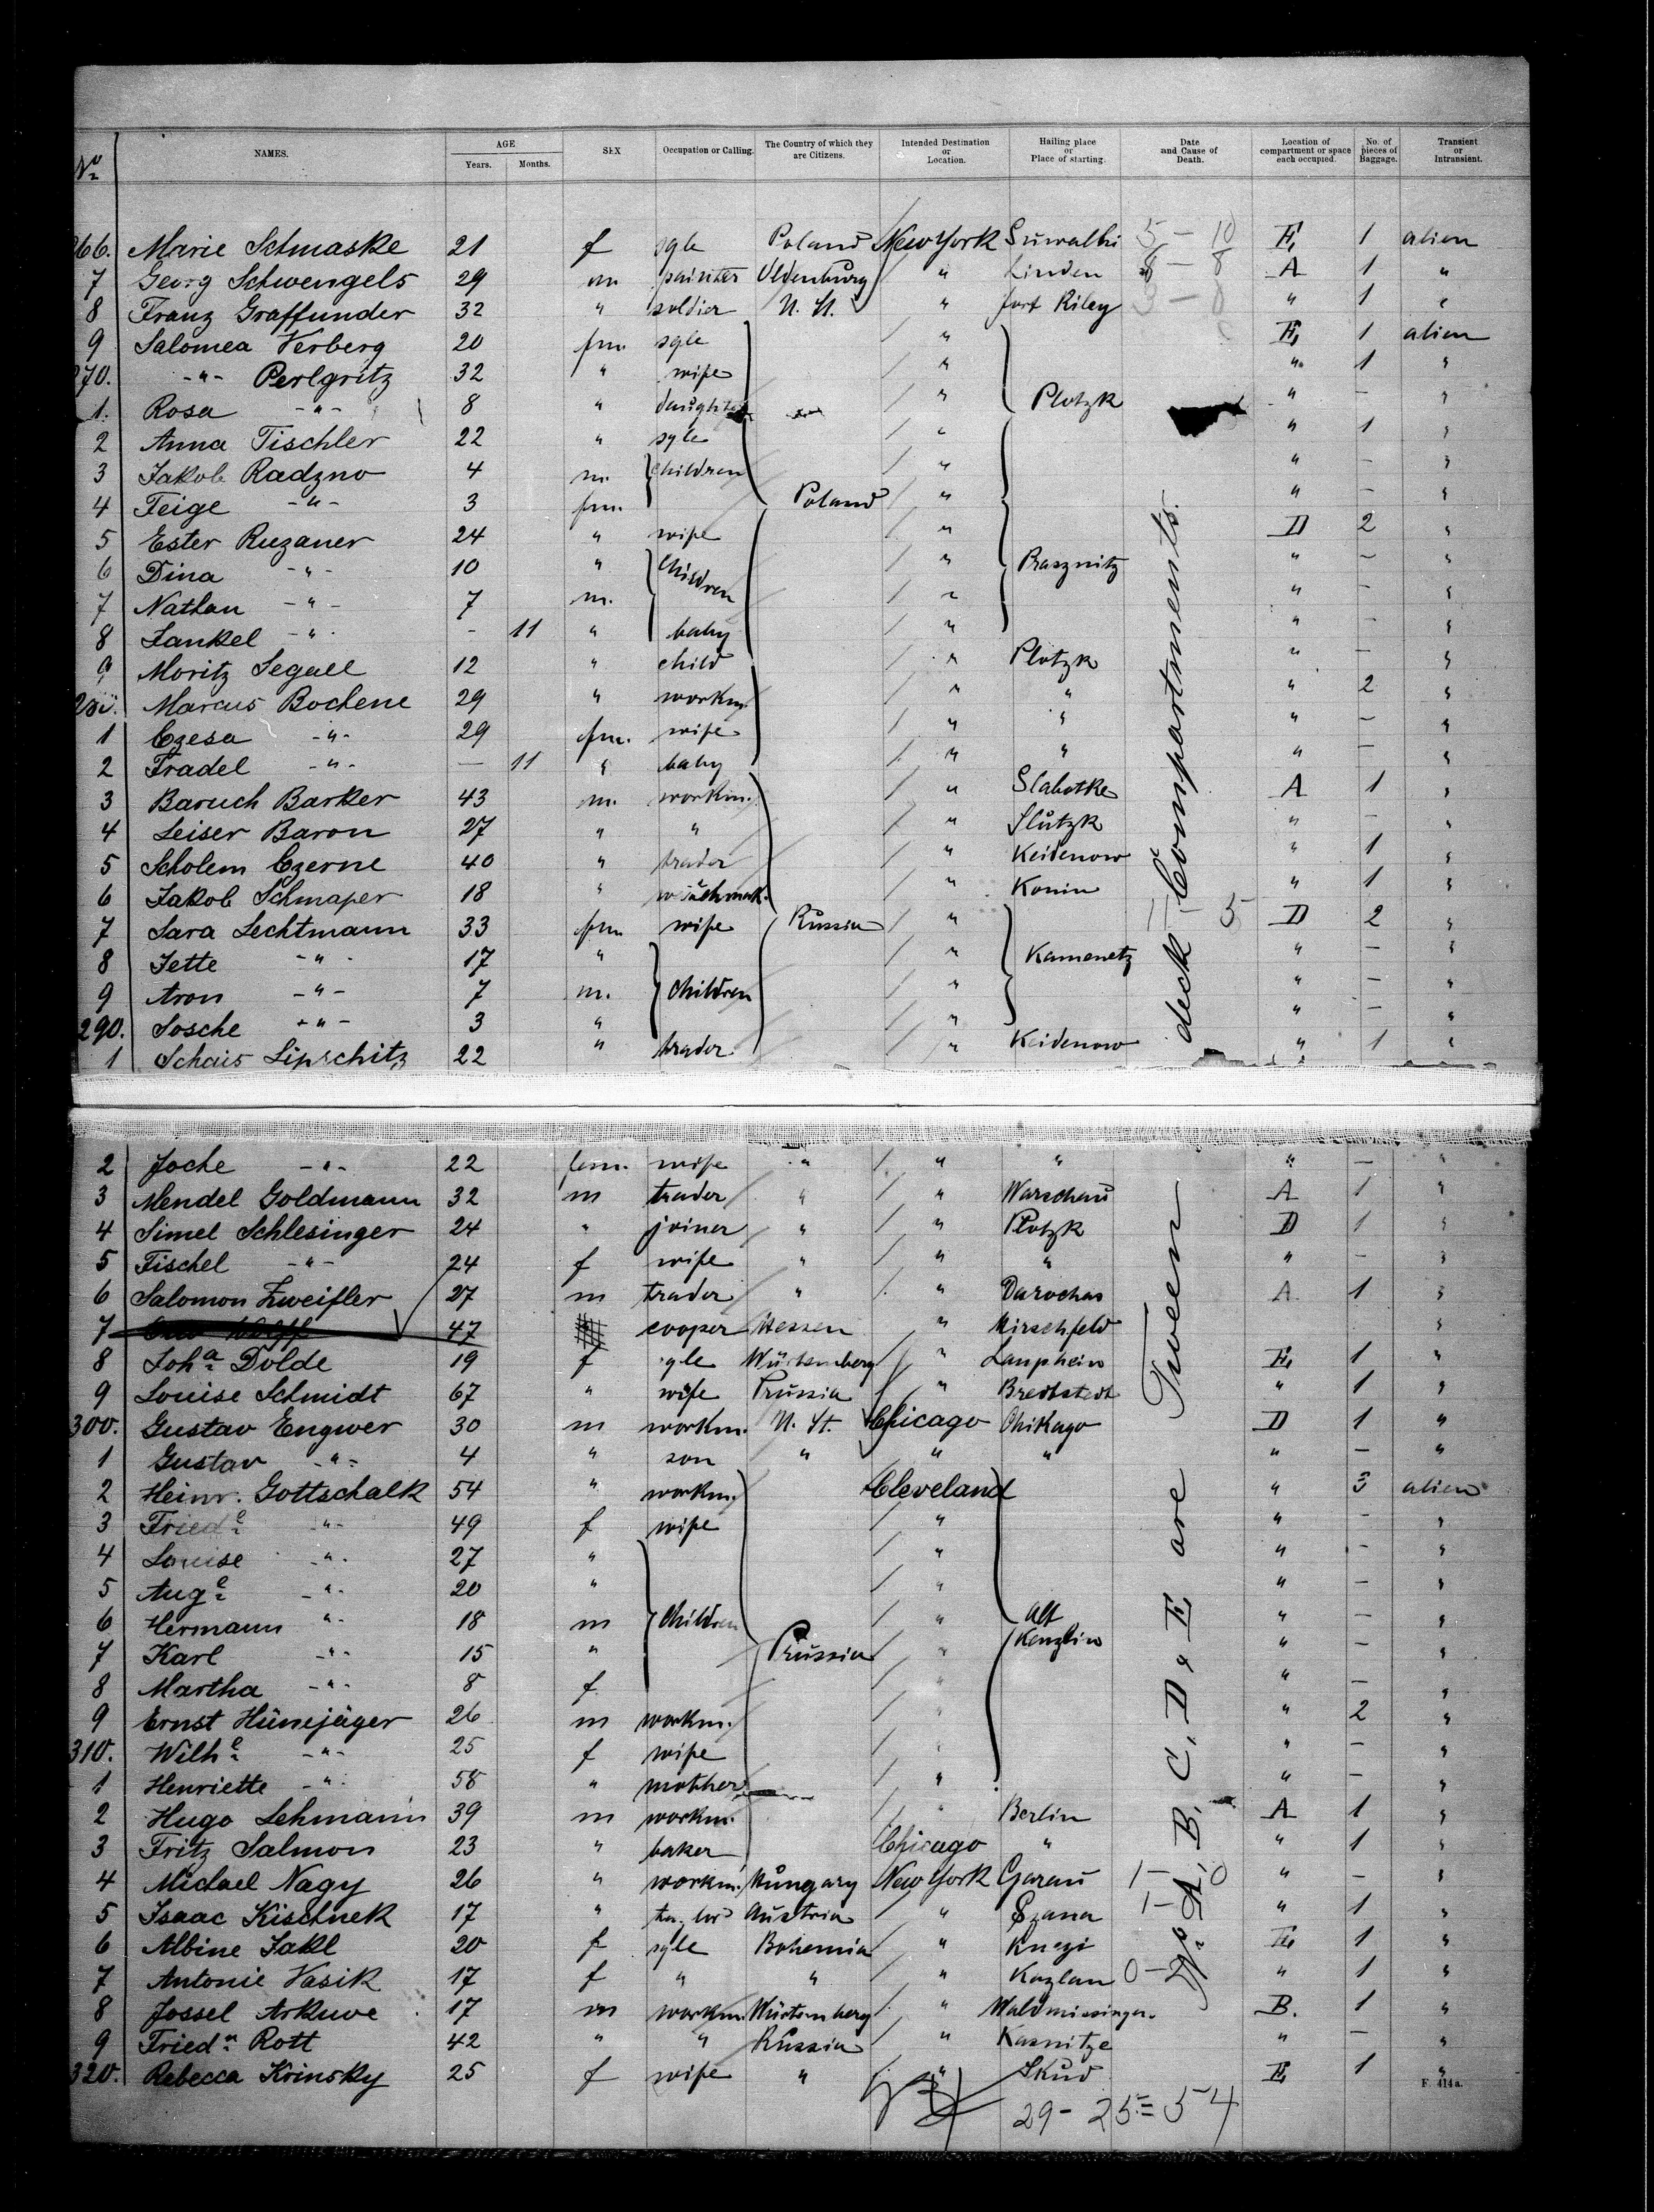 No
NAMES.
AGE
Years. Months.
SEX
Occupation or Calling.
The Country of which they are Citizens.
Intended Destination or Location.
Hailing place or Place of starting.
Date and Cause of Death.
Location of compartment or space each occupied.
No. of pieces of Baggage.
Transient or Intransient.
266. Marie Schmaske 21 f sgle Poland New York Suwalki 5 - 10 E, 1 alien
7 Georg Schwengels 29 m painter Oldenburg " Linden 8 - 8 A 1 "
8 Franz Graffunder 32 " soldier U. St. " fort Riley 3 - 8 " 1 "
9 Salomea Verberg 20 fm. sgle " E, 1 alien
270. -"- Perlgritz 32 " wife " " 1 "
1. Rosa -"- 8 " daughter " Plotzk " - "
2 Anna Tischler 22 " sgle " " 1 "
3 Jakob Radzno 4 m. children " " - "
4 Feige -"- 3 fm. Poland " " - "
5 Ester Ruzaner 24 " wife " D 2 "
6 Dina -"- 10 " Children " Prasznitz " - "
7 Nathan -"- 7 m. " " - "
8 Jankel -"- - 11 " baby " " - "
9 Moritz Segall 12 " child " Plotzk " - "
280. Marcus Bochene 29 " workm. " " " 2 "
1 Czesa -"- 29 fm. wife " " " - "
2 Fradel -"- — 11 " baby " " " - "
3 Baruch Barker 43 m. workm. " Slabotke A 1 "
4 Leiser Baron 27 " " " Slutzk " - "
5 Scholem Czerne 40 " trader " Keidenow " 1 "
6 Jakob Schmaper 18 " " Konin " 1 "
7 Sara Lechtmann 33 fm. wife Russia " 11 - 5 D 2 "
8 Jette -"- 17 " " Kamenetz " - "
9 Aron -"- 7 m. Children " " - "
290. Sosche -"- 3 " " " - "
1 Schais Lipschitz 22 " trader " Keidenow " 1 "
2 Joche -"- 22 fem. wife " " " " - "
3 Mendel Goldmann 32 m trader " " Warschau A 1 "
4 Simel Schlesinger 24 " joiner " " Plotzk D 1 "
5 Fischel -"- 24 f wife " " " " - "
6 Salomon Zweifler 27 m trader " " Darochas A 1 "
7 47 cooper Hessen " Hirschfeld "
8 Joha Dolde 19 f sgle Würtemberg " Laupheim E, 1 "
9 Louise Schmidt 67 " wife Prussia " Bredstedt " 1 "
300. Gustav Engwer 30 m workm. U. St. Chicago Chikago D 1 "
1 Gustav -"- 4 " son " " " " - "
2 Heinr. Gottschalk 54 " workm. Cleveland " 3 alien
3 Friede -"- 49 f wife " " - "
4 Louise -"- 27 " " " - "
5 Auge -"- 20 " " " - "
6 Hermann -"- 18 m Children " Alt Kenzlin " - "
7 Karl -"- 15 " Prussia " " - "
8 Martha -"- 8 f " " - "
9 Ernst Hünejäger 26 m workm. " " 2 "
310. Wilhe -"- 25 f wife " " - "
1 Henriette -"- 58 " mother " " - "
2 Hugo Lehmann 39 m workm. " Berlin A 1 "
3 Fritz Salmon 23 " baker Chicago " " 1 "
4 Michael Nagy 26 " workm. Hungary New York Garau 1 - 0 " - "
5 Isaac Kischnek 17 " Austria " Szana 1 - " 1 "
6 Albine Jakl 20 f sgle Bohemia " Knezi E, 1 "
7 Antonie Vasik 17 f " " " Kozlan 0 - " 1 "
8 Jossel Arkuve 17 m workm. Würtemberg " B. 1 "
9 Friedr. Rott 42 " " Russia " Kasnitze " - "
320. Rebecca Krinsky 25 f wife " " Skud E, 1 "
No A, B, C, D, & E, are Tween deck Compartments.
29 - 25 = 54
F. 414a.